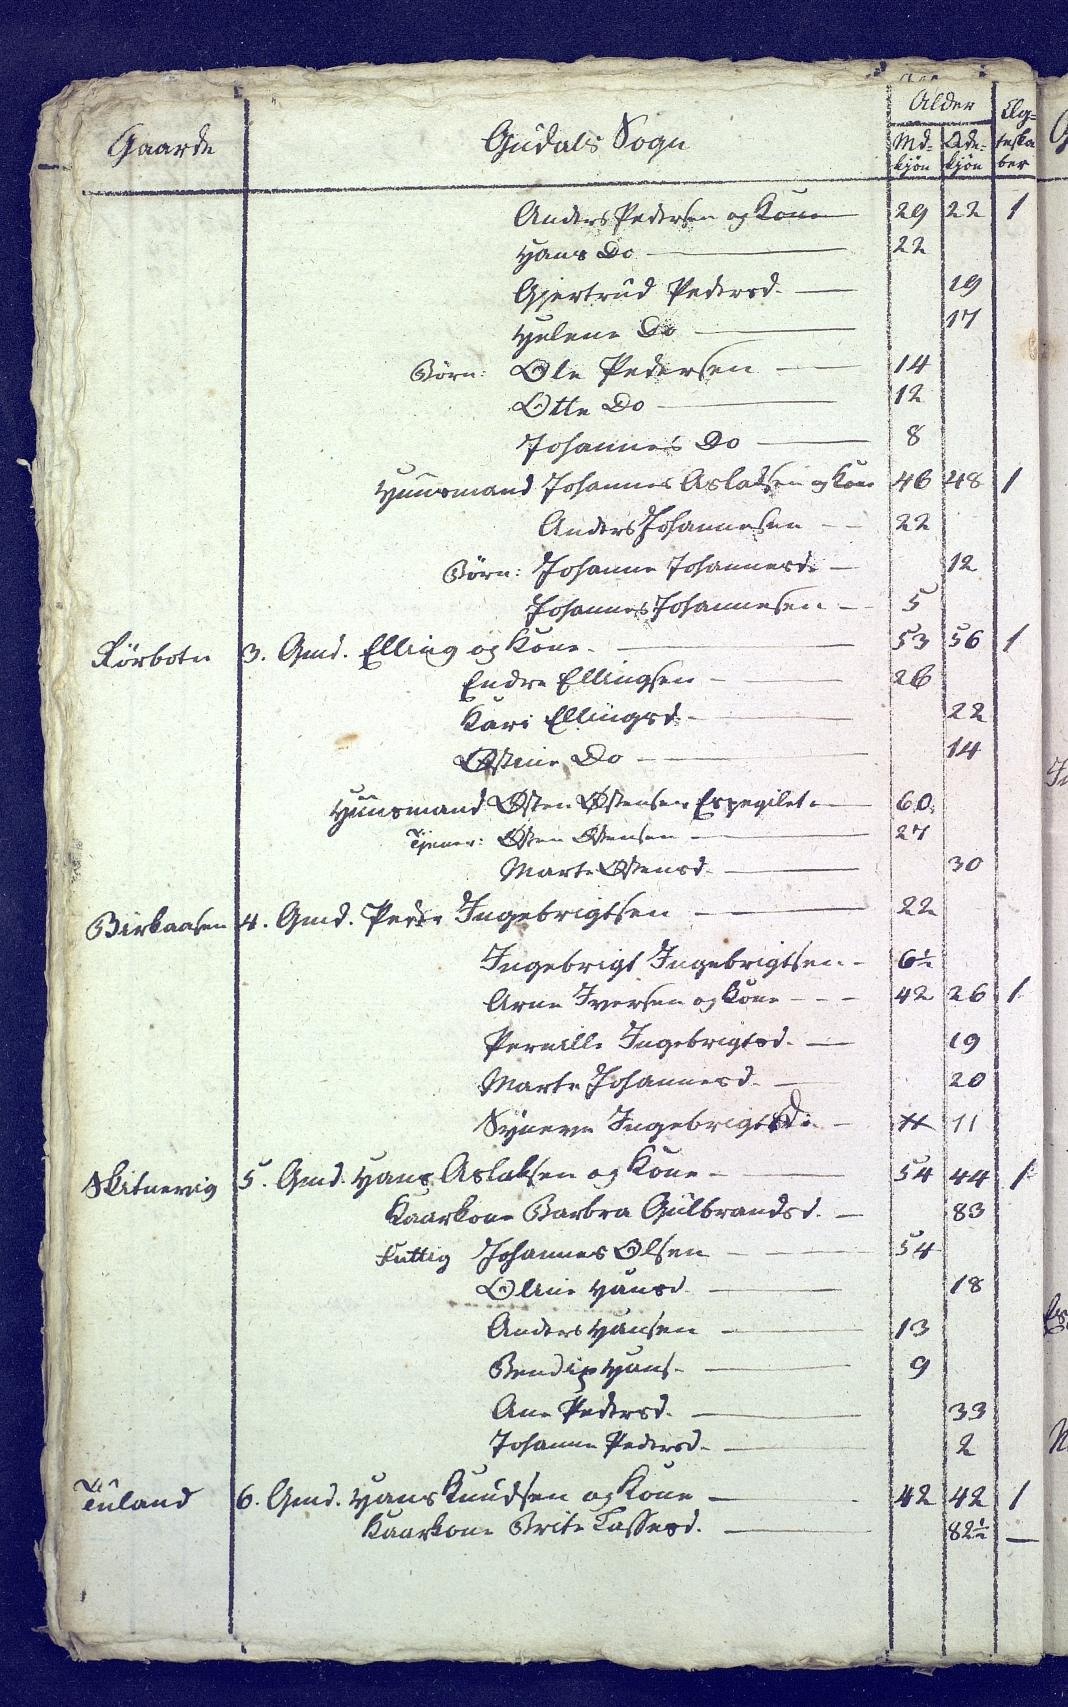 Gaarde Gudals Sogn Alder Ægteskaber
Md-kjøn Qde-kjøn
Anders Pedersen og Kone 29 22 1
Hans Do 22
Gjertrud Pedersd. 19
Helene Do 17
Børn: Ole Pedersen 14
Otte Do 12
Johannes Do 8
Huusmand Johannes Aslaksen og Kone 46 48 1
Anders Johannesen 22
Børn: Johanne Johannesd. 12
Johannes Johannesen 5
Rørbotn 3. Gmd. Elling og Kone. 53 56 1
Endre Ellingsen 26
Kari Ellingsd. 22
Østine Do 14
Huusmand Østen Østensen 60
Tjener: Østen Østensen 27
Marte Østensd. 30
Birkaasen 4. Gmd. Peder Ingebrigtsen 22
Ingebrigt Ingebrigtsen 6½
Arne Iversen og Kone 42 26 1
Pernille Ingebrigtsd. 19
Marte Johannesd. 20
Synneve Ingebrigtsd. 11
Skitnevig 5. Gmd. Hans Aslaksen og Kone 54 44 1
Kaarkone Barbra Gulbrandsd. 83
Fattig Johannes Olsen 54
Oline Hansd. 18
Anders Hansen 13
Bendix Hans. 9
Ane Pedersd. 33
Johanne Pedersd. 2
Tuland 6. Gmd. Hans Knudsen og Kone 42 42 1
Kaarkone Brite Lassesd. 82½